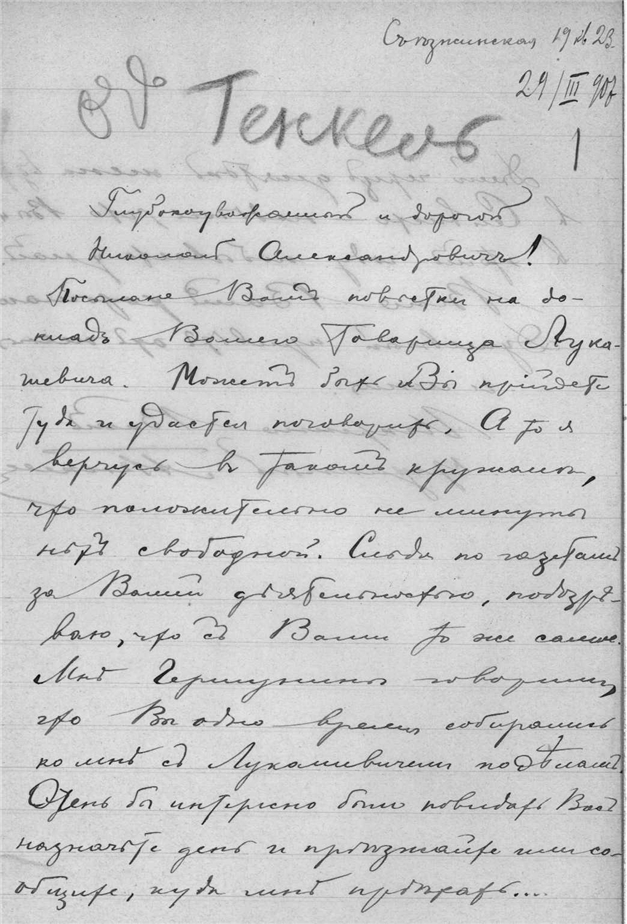 Съѣзжинская 19 кв 23.
29/III 907
од Генкель
1
Глубокоуважаемый и дорогой
Николай Александровичъ!
Посылаю Вамъ повѣстки на до-
кладъ Вашего Товарища Лука-
шевича. Можетъ быть и Вы прійдете
туда и удастся поговорить. А то я
верчусь въ такомъ кружалѣ,
что положительно не минуты
нѣтъ свободной. Слѣдя по газетамъ
за Вашей дѣятельностью, подозрѣ-
ваю, что съ Вами то же самое.
Мнѣ говорили,
что Вы одно время собирались
ко мнѣ съ Лукашевичемъ по дѣламъ.
Очень бы интересно было повидать Васъ
назначьте день и пріѣзжайте или со-
общите, куда мнѣ пріѣхать....